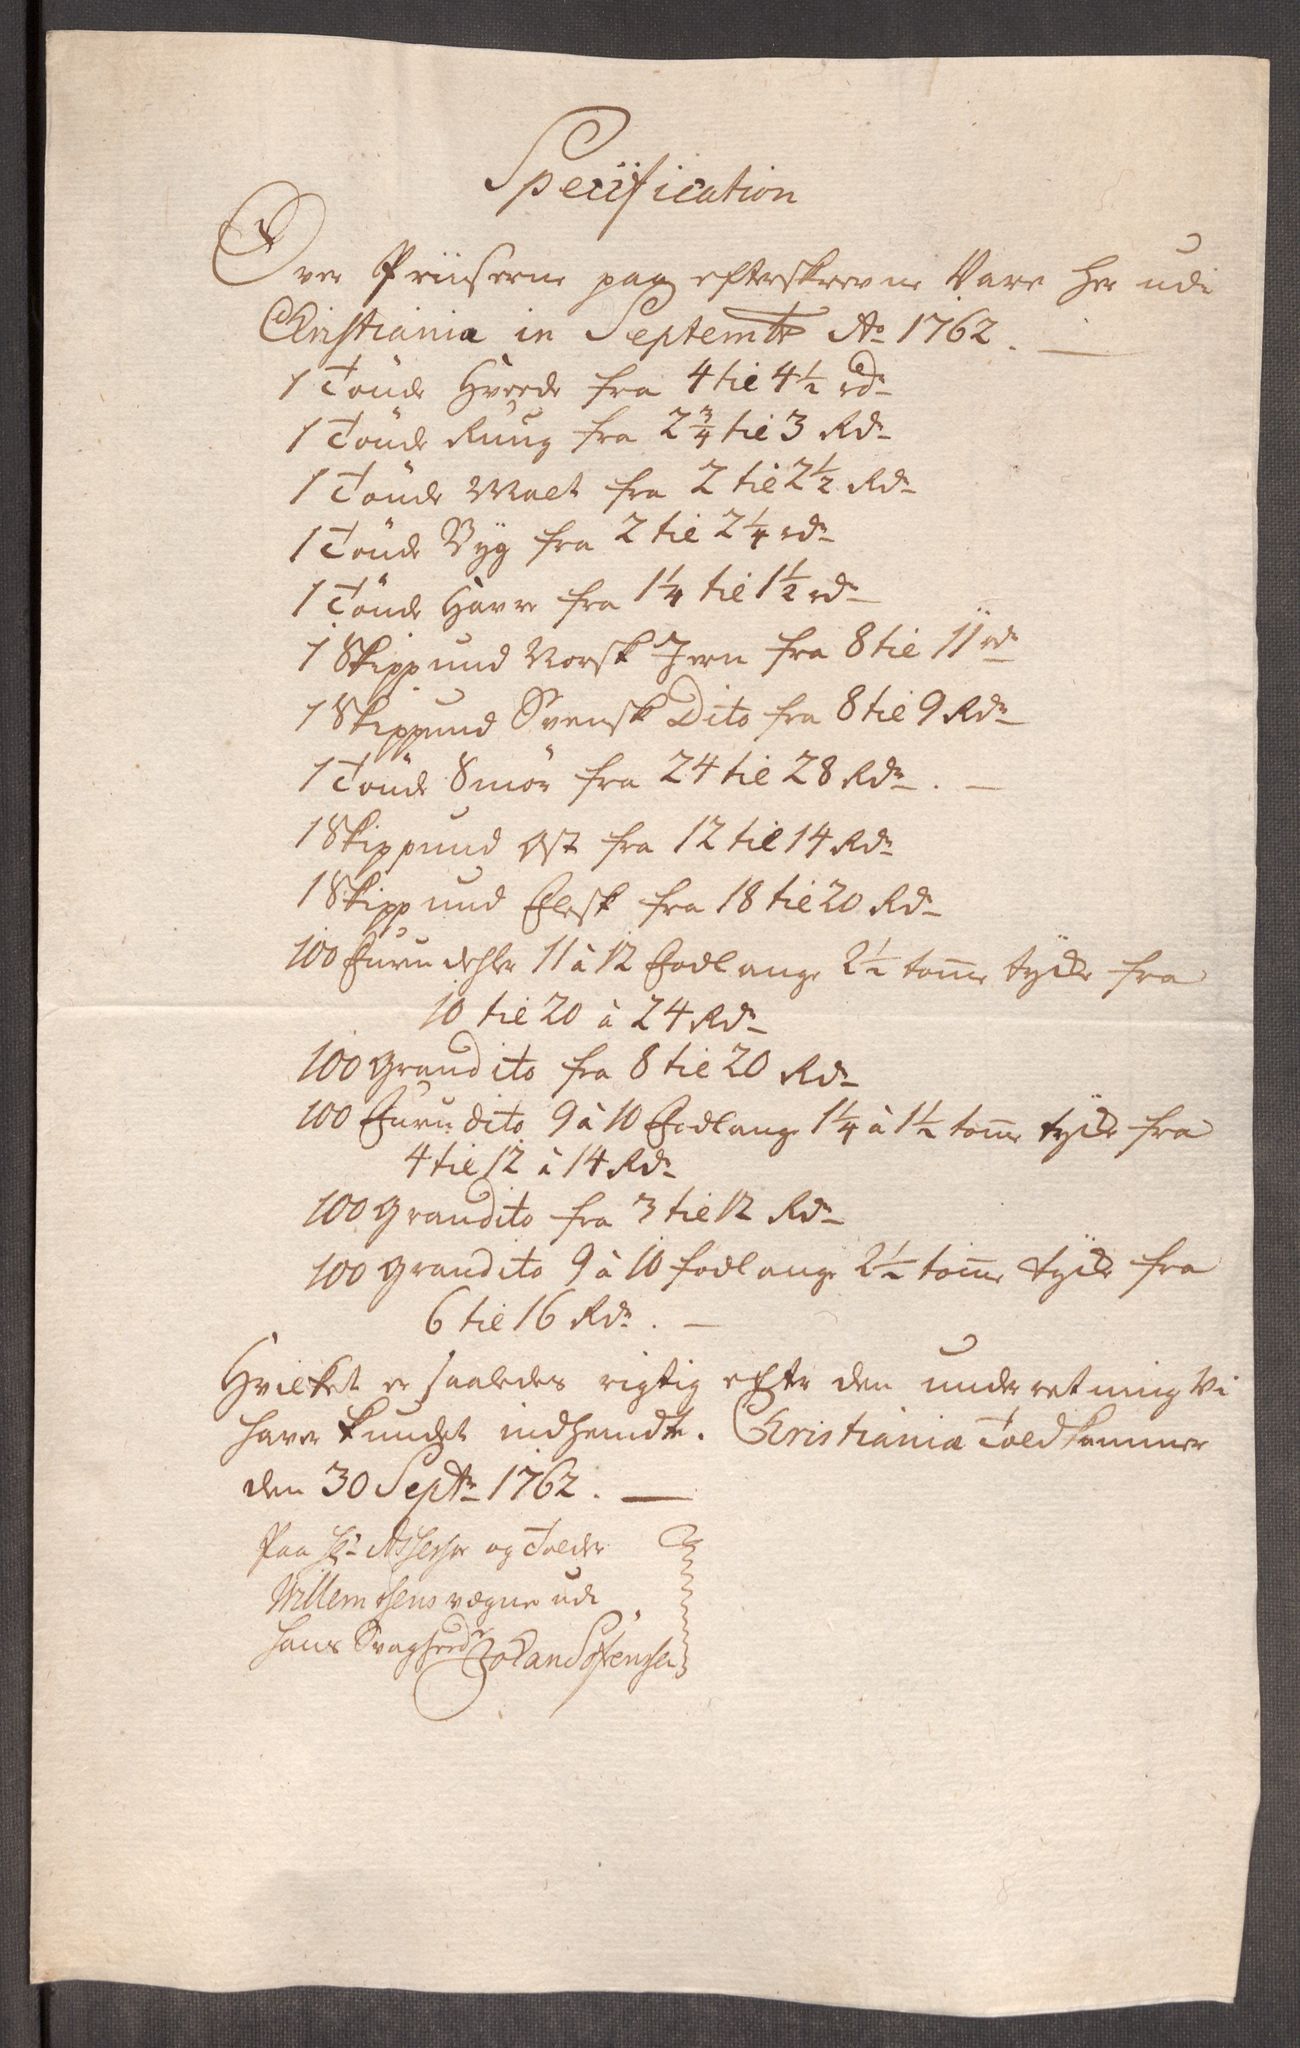 Specification
Over Priiserne paa efterskrevne Vare her udi
Christiania in Septembr Ao 1762.
1 Tönde Hvede fra 4 til 4½ rdr
1 Tönde Rug fra 2¾ til 3 Rdr
1 Tönde Malt fra 2 til 2½ Rdr
1 Tönde Byg fra 2 til 2¼ rdr
1 Tönde Havre fra 1¼ til 1½ rdr
1 Skippund Norsk Jern fra 8 til 11 rdr
1 Skippund Svensk Dito fra 8 til 9 Rdr
1 Tönde Smör fra 24 til 28 Rdr.
1 Skippund Ost fra 12 til 14 Rdr
1 Skippund Flesk fra 18 til 20 Rdr
100 Furu dehler 11 à 12 Fod lange 2½ tomme tyke fra
10 til 20 à 24 Rdr
100 Gran dito fra 8 til 20 Rdr
100 Furu dito 9 à 10 Fod lange 1¼ à 1½ tomme tyke fra
4 til 12 à 14 Rdr
100 Gran dito fra 3 til 12 Rdr
100 Gran dito 9 à 10 fod lange 2½ tomme tyke fra
6 til 16 Rdr.
Hvilket er saaledes rigtig efter den underretning Vi
haver kundet indhendte. Christiania Toldkammer
den 30 Septr 1762.
Paa Hr Assessor og Tolder
Willemsens vegne udi
hans Svaghed Johan Sörensen